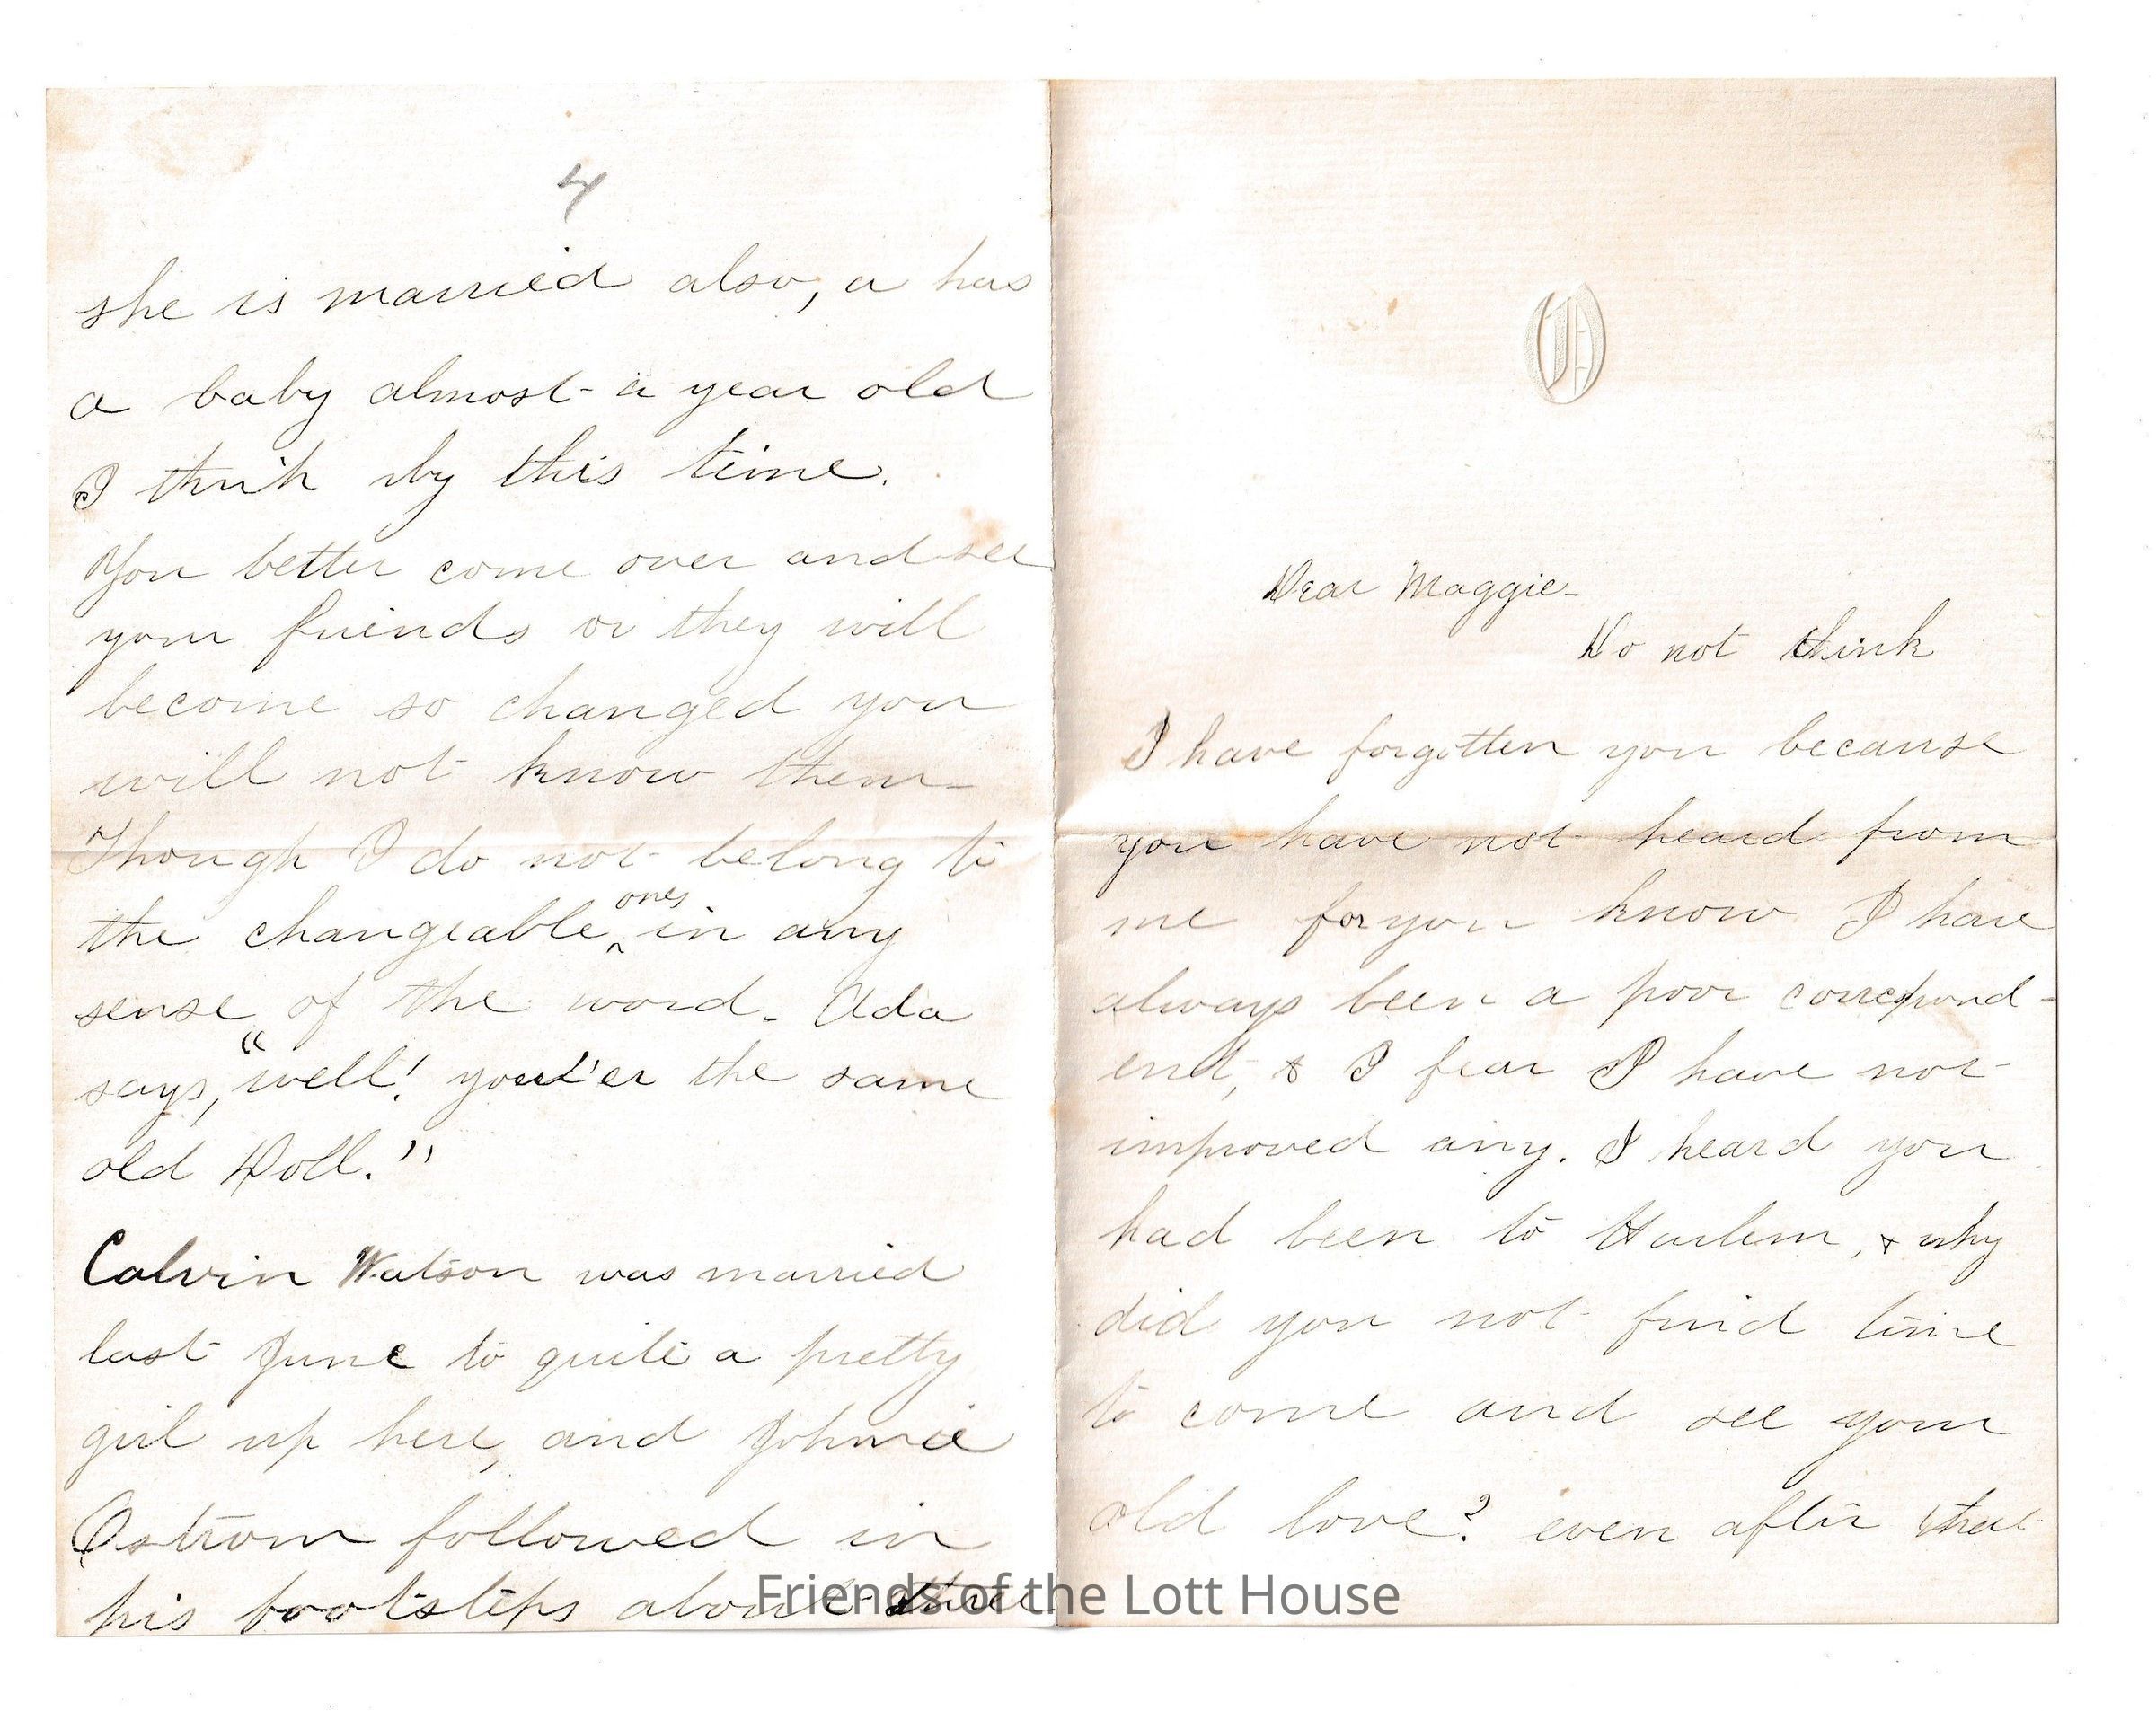 4
she is married also, a has
a baby almost a year old
I think by this time.
You better come over and see
your friends or they will
become so changed you
will not know them
Though I do not belong to
the changeable ^ones in any
sense of the word. Ada
says, "well! you'er the same
old Doll."
Calvin Watson was married
last June to quite a pretty
girl up here, and Johnie
Ostrom followed in
his bootsteps about three
O
Dear Maggie-
Do not think
I have forgotten you because
you have not heard from
me for you know I have
always been a poor correspond-
ent, & I fear I have not
improved any. I heard you
had been to Harlem, & why
did you not find time
to come and see your
old love? even after that
Friends of the Lott House